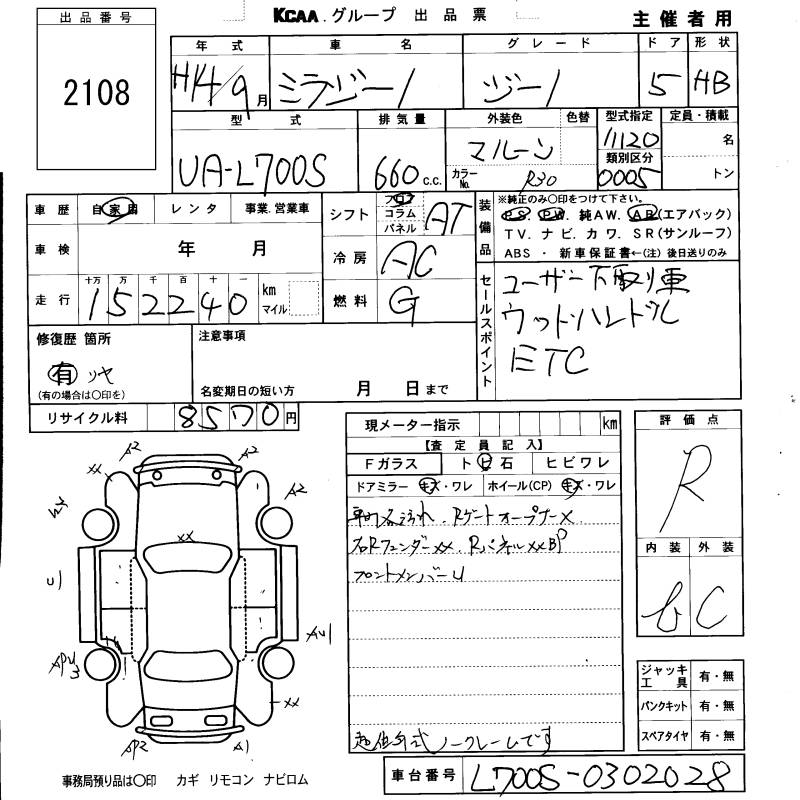 出品番号
2108
KCAA.グループ 出品票
主催者用
年式 車名 グレード ドア 形状
H14/9月 ミラジーノ ジーノ 5 HB
型式 排気量 外装色 色替 型式指定 定員・積載
UA-L700S 660 c.c. マルーン 11120 名
カラーNo. R30 類別区分 0005 トン
車歴 自家用 レンタ 事業.営業車
シフト フロア コラム パネル AT
装備品 ※純正のみ〇印をつけて下さい。
PS. PW. 純AW. AB(エアバック)
TV. ナビ. カワ. SR(サンルーフ)
ABS ・ 新車保証書←(注) 後日送りのみ
車検 年 月
冷房 AC
走行 十万 万 千 百 十 一
152240 km マイル
燃料 G
セールスポイント
ユーザー下取り車
ウッドハンドル
ETC
修復歴 箇所
有
(有の場合は〇印を)
注意事項
名変期日の短い方 月 日まで
リサイクル料 8570円
現メーター指示 km
【査定員記入】
Fガラス トビ石 ヒビワレ
ドアミラー キズ・ワレ ホイール(CP) キズ・ワレ
Rゲートオープナー×
右RフェンダーXX. RパネルXX BP
フロントメンバーU
ノークレームです
評価点
R
内装 外装
C
ジャッキ工具 有・無
パンクキット 有・無
スペアタイヤ 有・無
A2 A2
XX
A2
XX
U1
AU1
XX
AP2 A1
事務局預り品は〇印 カギ リモコン ナビロム
車台番号 L700S-0302028